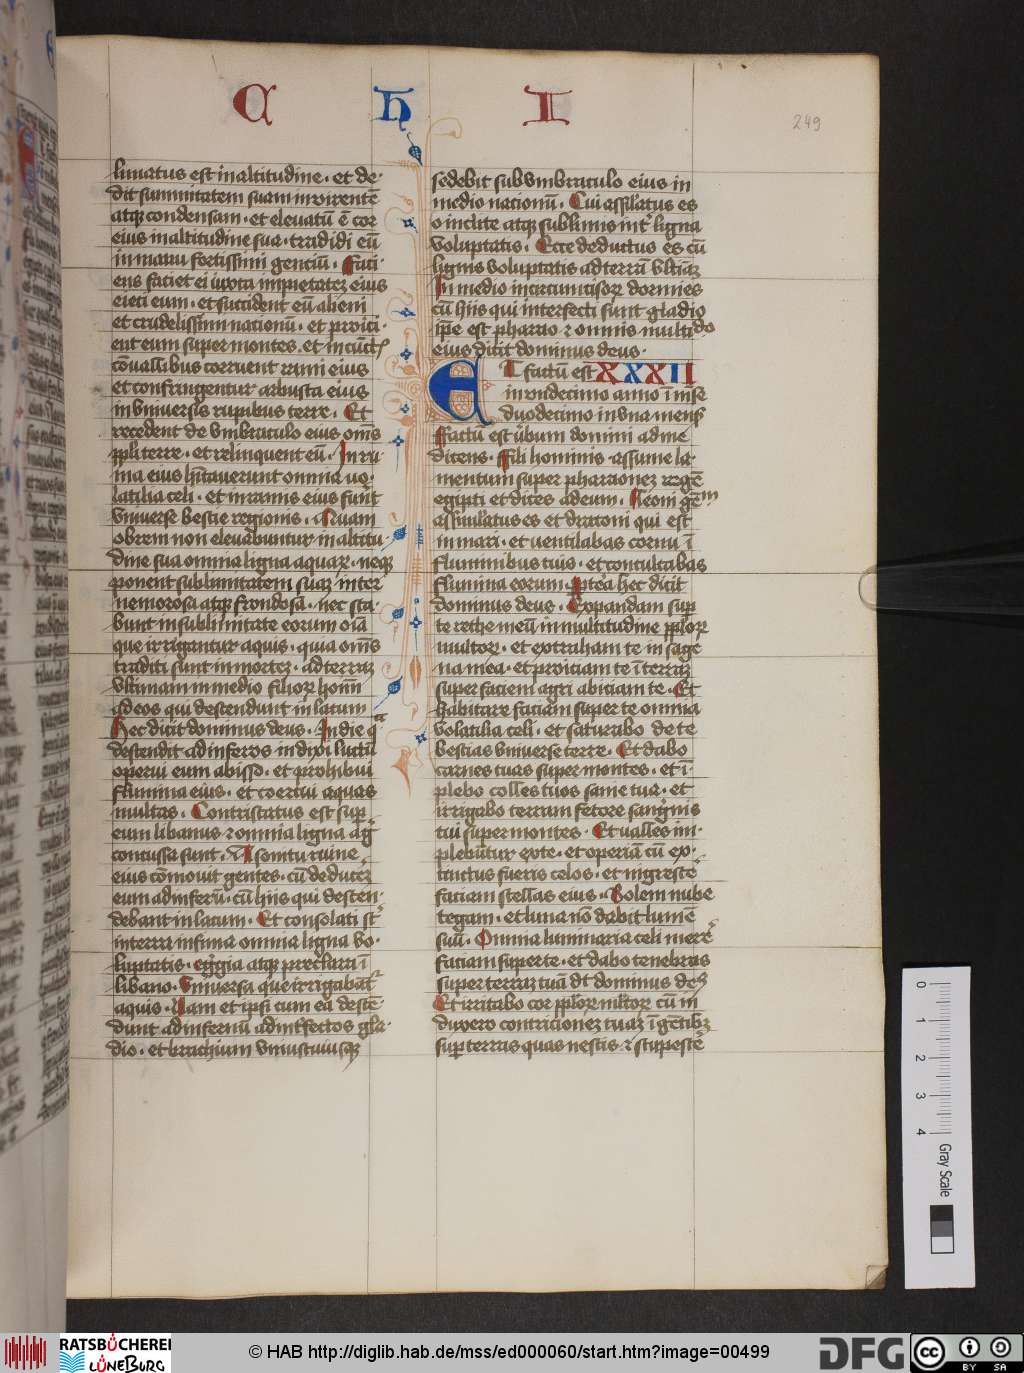 C h I
249
limatus est in altitudine · et de·
dit summitatem suam in virentē
atqꝫ condensam · et eleuatū ē cor
eius in altitudine sua · tradidi eū
in manu fortissimi gentiū · Faci·
ens faciet ei iuxta impietateꝫ eius
eieci eum · et succident eū alieni
et crudelissimi nationū · et proici·
ent eum super montes · et in cūctꝭ
cōuallibus corruent rami eius
et confringentur arbusta eius
in vniuersis rupibus terre · Et
recedent de vmbraculo eius om̄s
ppl'i terre · et relinquent eū · In ru·
ina eius hītauerunt omnia uo·
latilia celi · et in ramis eius fuerūt
vniuerse bestie regionis · Quam
obrem non eleuabuntur in altitu·
dine sua omnia ligna aquaꝝ · neqꝫ
ponent sublimitatem suaꝫ inter
nemorosa atqꝫ frondosa · nec sta·
bunt in sublimitate eorum oīa
que irrigantur aquis · quia om̄s
traditi sunt in morteꝫ · ad terraꝫ
vltimam in medio filioꝝ homī
ad eos qui descendunt in lacum
Hec dicit dominus deus · In die qª
descendit ad inferos indixi luctū
operui eum abisso · et prohibui
flumina eius · et coercui aquas
multas · Contristatus est sup̱
eum libanus ⁊ omnia ligna agͥ
concussa sunt · A sonitu ruine
eius cōmouit gentes · cū deducereꝫ
eum ad inferū · cū hiis qui descen·
debant in lacum · Et consolati st̄
in terra infima omnia ligna vo·
luptatis · egͥgia atqꝫ preclara ī
libano · Vniuersa que irrigabātͬ
aquis · Nam et ipsi cum eo descē·
dunt ad infernū ad int'fectos gla·
dio · et brachium vniuscuiusqꝫ
sedebit sub vmbraculo eius in
medio nationū · Cui assilatus es
o inclite atqꝫ sublimis int' ligna
voluptatis · Ecce deductus es cū
lignis voluptatis ad terrā vltīaꝫ
In medio incircumcisoꝝ dormies
cū hiis qui interfecti sunt gladio
ip̄e est pharao ⁊ omnis multido
eius dicit dominus deus ·
ET factū est XXXII
in vndecimo anno ī mēse
duodecimo in vna mensꝭ
Factū est v̄bum domini ad me
dicens · Fili hominis assume la·
mentum super pharaoneꝫ regē
egipti et dices ad eum · Leoni gēm
assimilatus es et draconi qui est
in mari · et ventilabas cornu ī
fluminibus tuis · et conculcabas
flumina eorum · Ptēa hec dicit
dominus deus · Expandam sup̱
te rethe meū in multitudine ppl'oꝝ
multoꝝ · et extraham te in sage
na mea · et proiciam te ī terraꝫ
super faciem agri abiciam te · Et
habitare faciam super te omnia
volatilia celi · et saturabo de te
bestias vniuerse terre · Et dabo
carnes tuas super montes · et ī·
plebo colles tuos sanie tua · et
irrigabo terram fetore sangͥnis
tui super montes · Et valles im·
plebūtur ex te · et operiā cū ex·
tinctus fueris celos · et nigresce
faciam stellas eius · Solem nube
tegam · et luna nō dabit lumē
suū · Omnia luminaria celi merē
faciam super te · et dabo tenebras
super terraꝫ tuā dt̄ dominus deꝰ
Et irritabo cor ppl'oꝝ ml'toꝝ cū in
duxero contricioneꝫ tuaꝫ ī gētibꝫ
sup̱ terras quas nescis · ⁊ stupescē
0 1 2 3 4 Gray Scale
RATSBÜCHEREI
LÜNEBURG
© HAB http://diglib.hab.de/mss/ed000060/start.htm?image=00499
DFG
cc BY SA